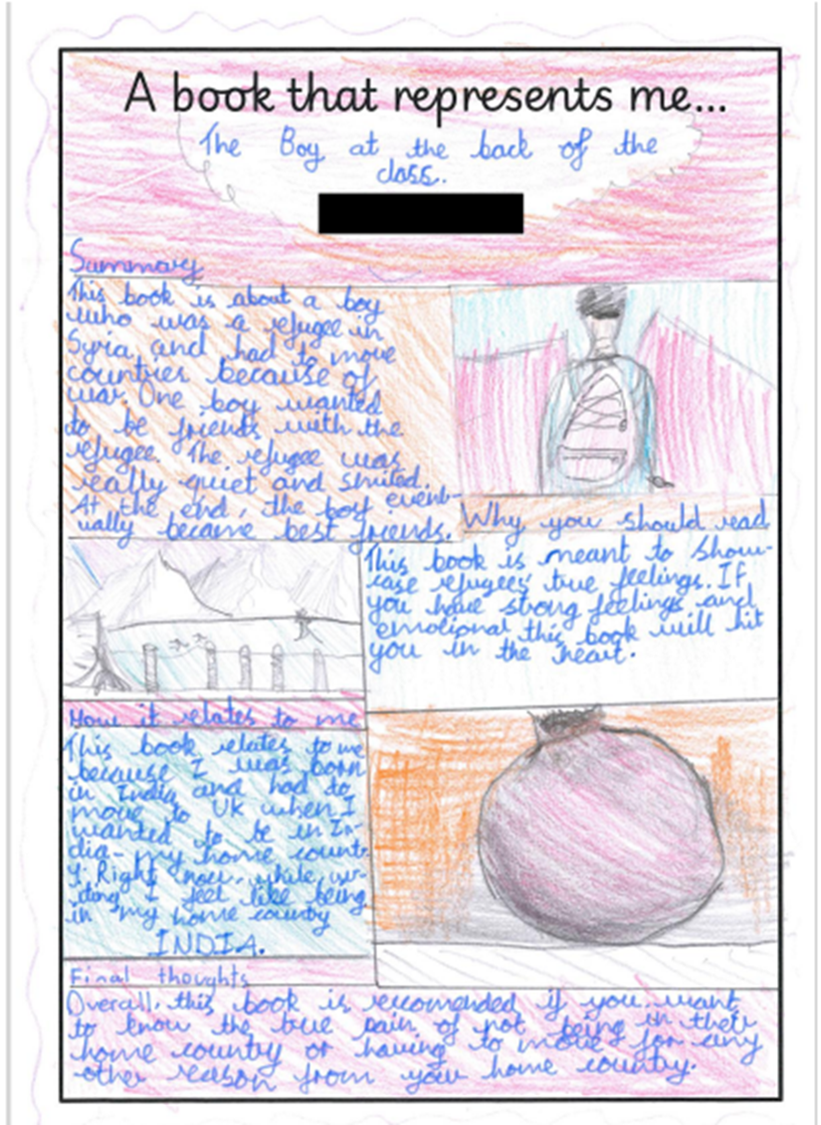 A book that represents me...
The Boy at the back of the
class.
Summary
This book is about a boy
who was a refugee in
Syria and had to move
countries because of
war. One boy wanted
to be friends with the
refugee. The refugee was
really quiet and smiled.
At the end, the boy event-
ually became best friends.
Why you should read
This book is meant to show-
case refugees' true feelings. If
you have strong feelings and
emotional this book will hit
you in the heart.
How it relates to me
This book relates to me
because I was born
in India and had to
move to UK when I
wanted to be in In-
dia- my home countr
y. Right now, while, wr-
iting I feel like being
in my home country
INDIA.
Final thoughts
Overall, this book is recomended if you want
to know the true pain of not being in their
home country or having to move for any
other reason from your home country.